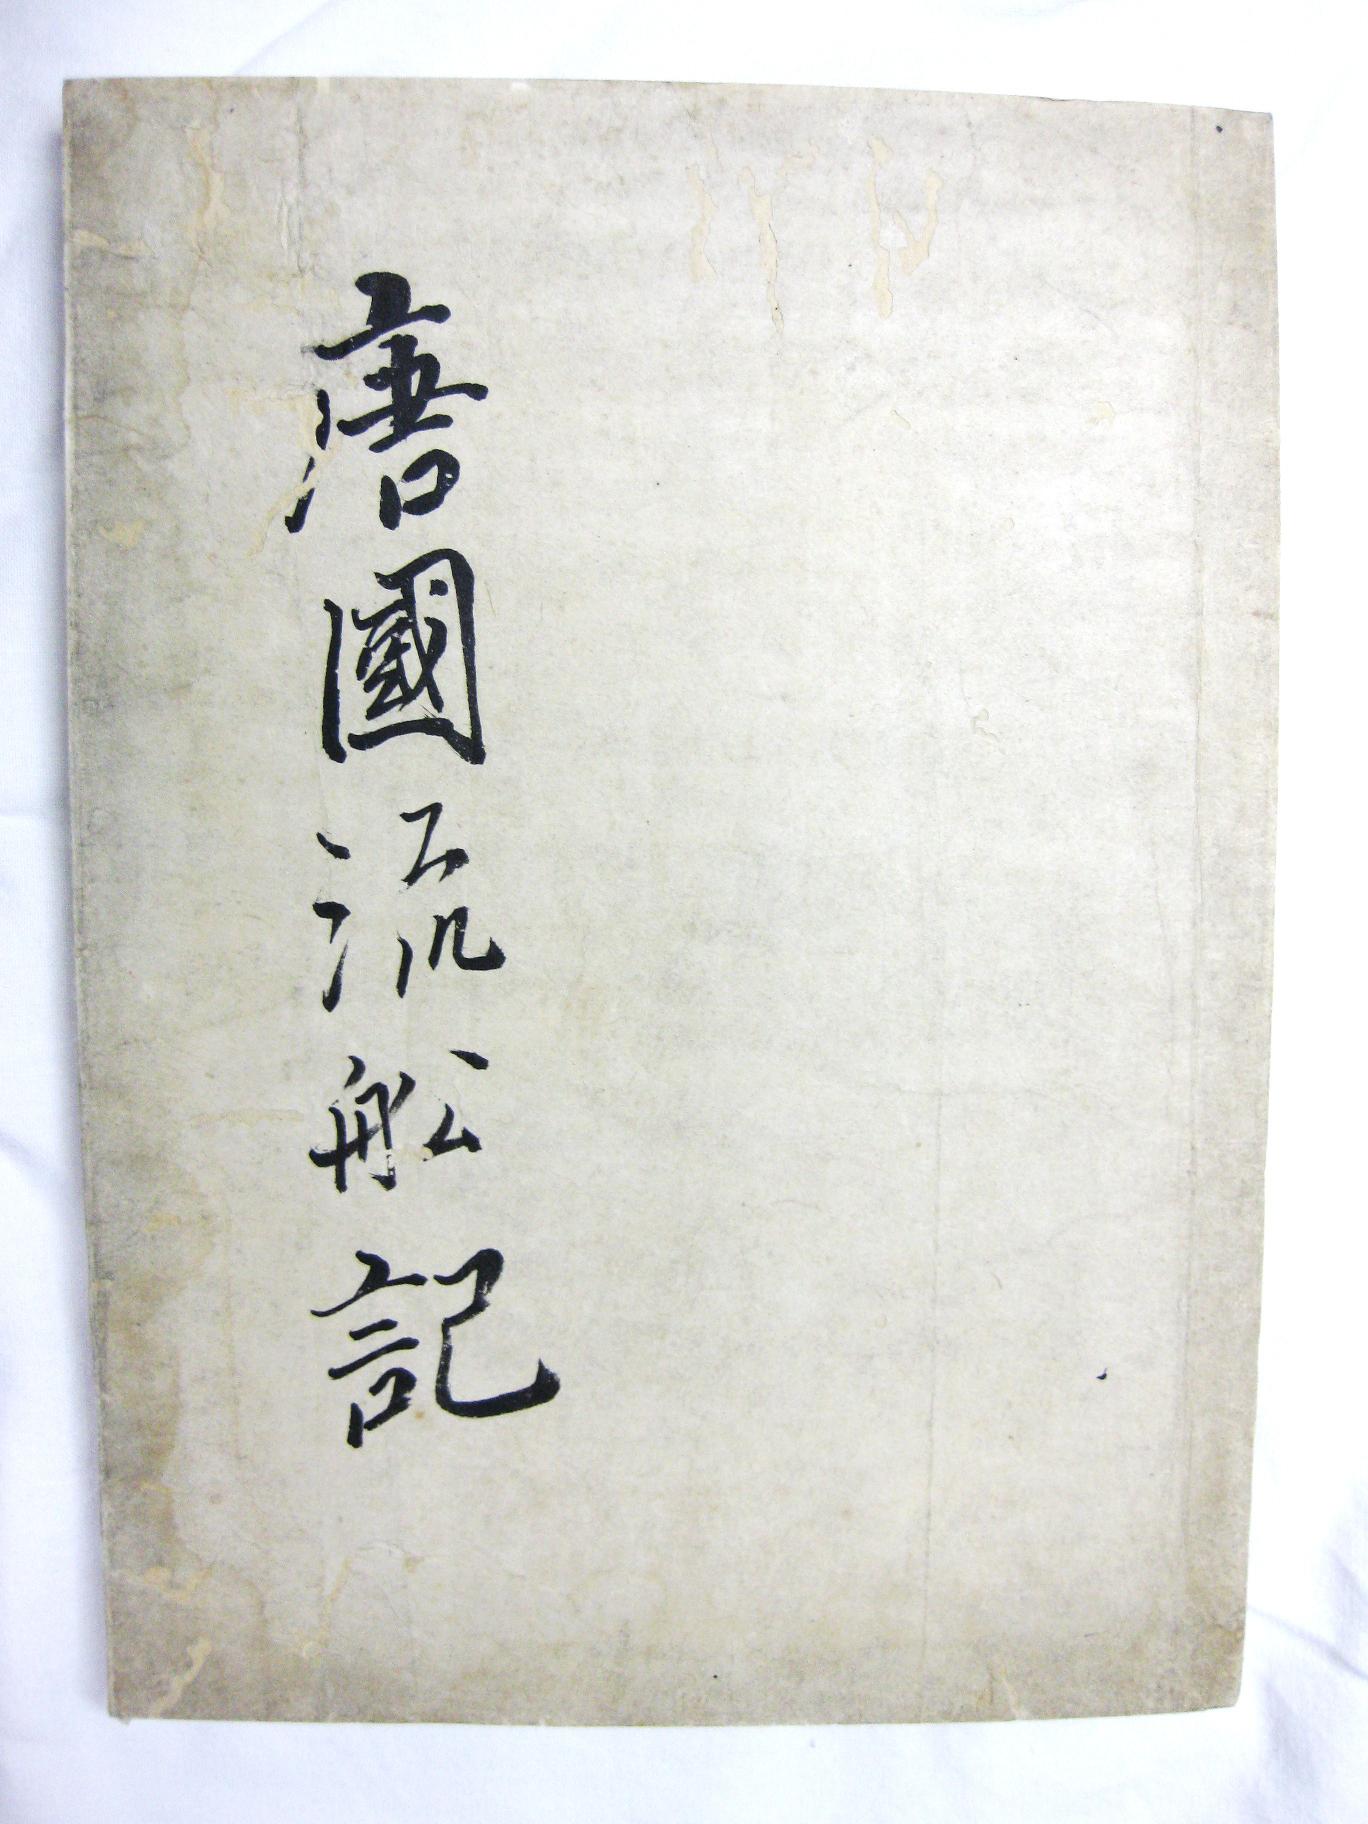 唐國流舩記